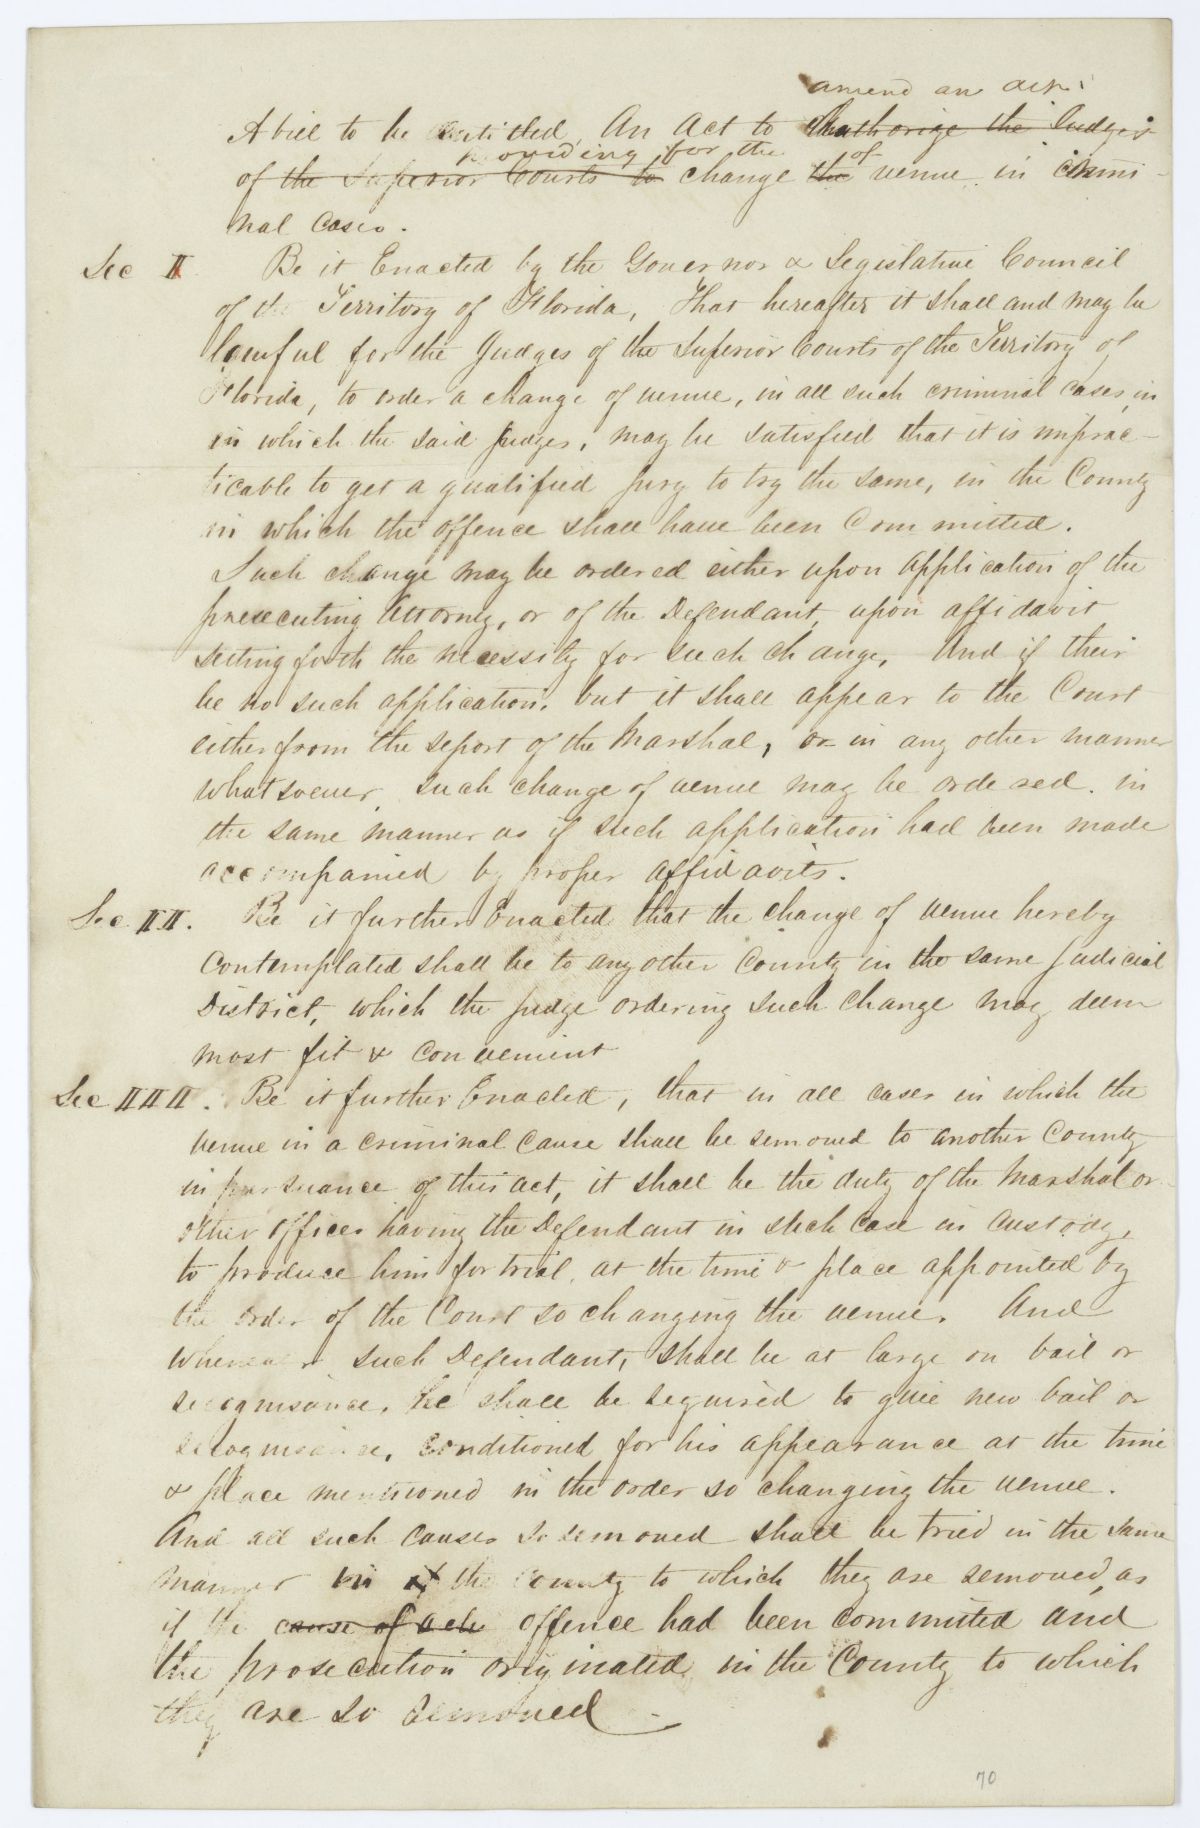 amend an act
A bill to be entitled, An Act to authorize the Judges
providing for the of
of the Superior Courts to change the venue in crimi-
nal cases.
Sec I Be it Enacted by the Governor & Legislative Council
of the Territory of Florida, That hereafter it shall and may be
lawful for the Judges of the Superior Courts of the Territory of
Florida, to order a change of venue, in all such criminal cases, in
in which the said Judges, may be satisfied that it is imprac-
ticable to get a qualified jury to try the same, in the County
in which the offence shall have been Committed.
Such change may be ordered either upon application of the
prosecuting Attorney, or of the Defendant, upon affidavit
setting forth the necessity for such change, And if their
be no such application, but it shall appear to the Court
either from the report of the Marshal, or in any other manner
whatsoever, such change of venue may be ordered in
the same manner as if such application had been made
accompanied by proper affidavits.
Sec II. Be it further Enacted that the change of venue hereby
Contemplated shall be to any other County in the same Judicial
District, which the judge ordering such change may deem
most fit & convenient
Sec III. Be it further Enacted, that in all cases in which the
venue in a criminal cause shall be removed to another County
in pursuance of this act, it shall be the duty of the Marshal or
other officer having the Defendant in such case in custody,
to produce him for trial, at the time & place appointed by
the order of the Court so changing the venue. And
whenever such Defendant, shall be at large on bail or
recognisance, he shall be required to give new bail or
recognisance, conditioned for his appearance at the time
& place mentioned in the order so changing the venue.
And all such causes so removed shall be tried in the same
manner in the County to which they are removed, as
if the cause of ach offence had been committed and
the prosecution originated, in the County to which
they are so removed
70